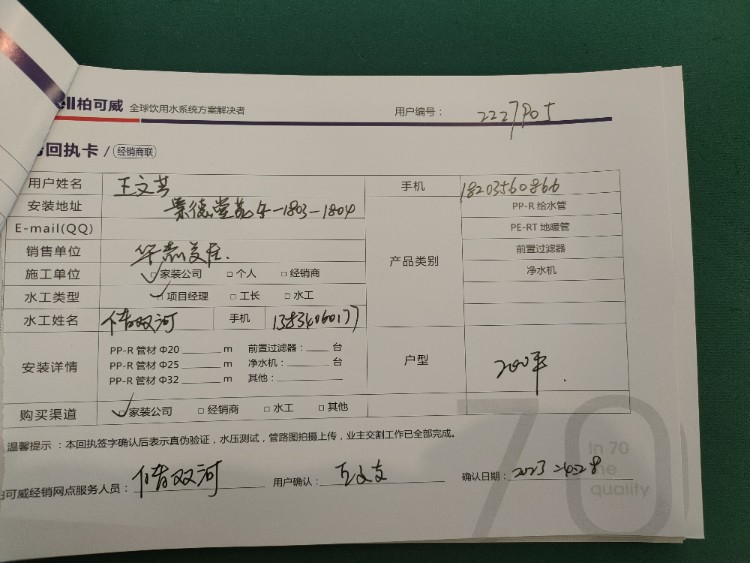 ell柏可威 全球饮用水系统方案解决者 用户编号：2227P05
回执卡 / 经销商联
用户姓名 王文芳 手机 18203560866
安装地址 景德堂苑 -1803-1804 PP-R 给水管
E-mail(QQ) PE-RT 地暖管
销售单位 产品类别 前置过滤器
施工单位 ✓ 家装公司 □ 个人 □ 经销商 净水机
水工类型 ✓ 项目经理 □ 工长 □ 水工
水工姓名 双河 手机 13834060177
安装详情 PP-R 管材 Φ20 ______ m 前置过滤器：____ 台 户型 200平
PP-R 管材 Φ25 ______ m 净水机：______ 台
PP-R 管材 Φ32 ______ m 其他：________
购买渠道 ✓ 家装公司 □ 经销商 □ 水工 □ 其他
温馨提示：本回执签字确认后表示真伪验证，水压测试，管路图拍摄上传，业主交割工作已全部完成。
柏可威经销网点服务人员： 双河 用户确认： 王文 确认日期：2023
70
In 70
quality